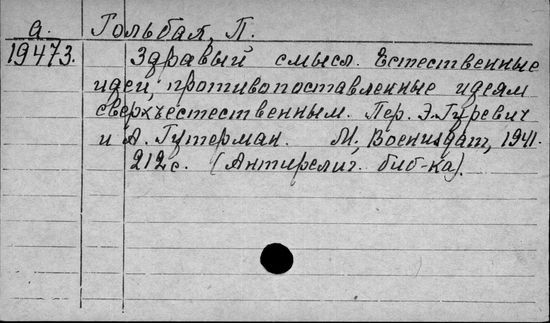 а. Гольбах, П.
19473. Здравый смысл. Естественные
идеи, противопоставленные идеям
сверхъестественным. Пер. Э. Гуревич
и А. Гутерман. М., Воениздат, 1941.
212 с. (Антирелиг. биб-ка).